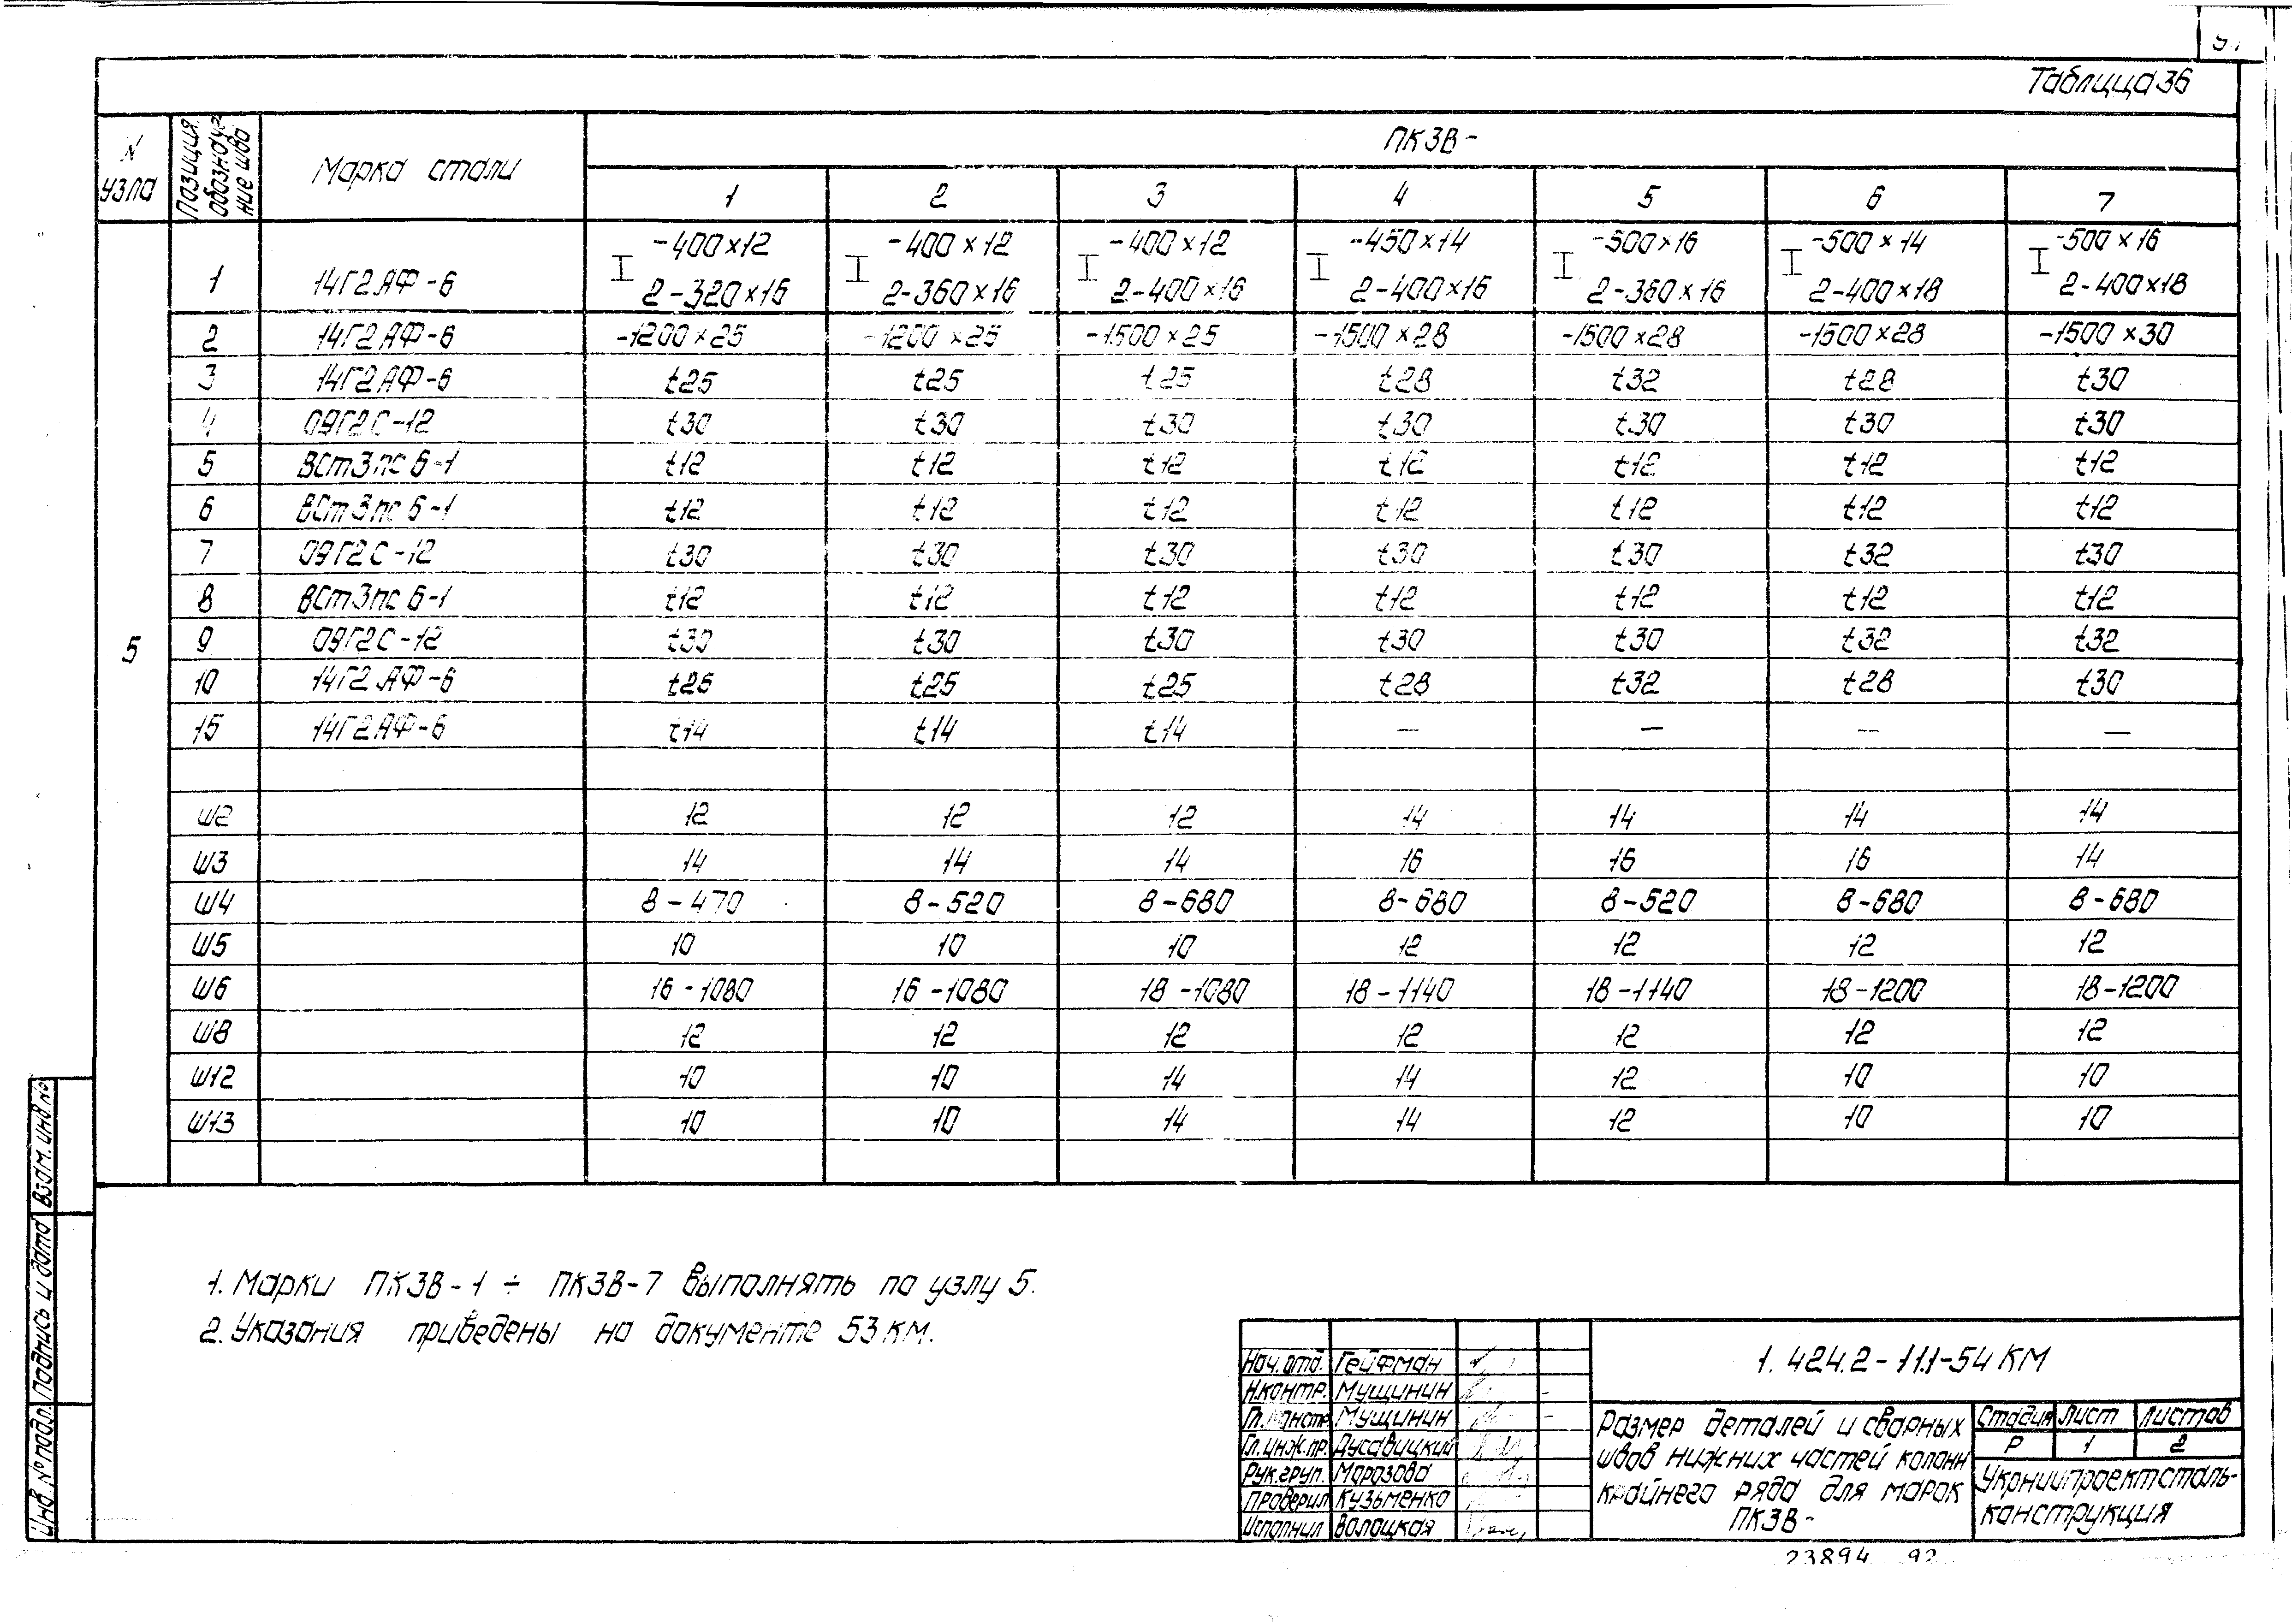 Таблица 36
N узла | Позиция, обозначение шва | Марка стали | ПК3В-
1 | 2 | 3 | 4 | 5 | 6 | 7
5
1 | 14Г2АФ-6 | I -400×12 2-320×16 | I -400×12 2-360×16 | I -400×12 2-400×16 | I -450×14 2-400×16 | I -500×16 2-360×16 | I -500×14 2-400×18 | I -500×16 2-400×18
2 | 14Г2АФ-6 | -1200×25 | -1200×25 | -1500×25 | -1500×28 | -1500×28 | -1500×28 | -1500×30
3 | 14Г2АФ-6 | t25 | t25 | t25 | t28 | t32 | t28 | t30
4 | 09Г2С-12 | t30 | t30 | t30 | t30 | t30 | t30 | t30
5 | ВСт3пс6-1 | t12 | t12 | t12 | t12 | t12 | t12 | t12
6 | ВСт3пс6-1 | t12 | t12 | t12 | t12 | t12 | t12 | t12
7 | 09Г2С-12 | t30 | t30 | t30 | t30 | t30 | t32 | t30
8 | ВСт3пс6-1 | t12 | t12 | t12 | t12 | t12 | t12 | t12
9 | 09Г2С-12 | t30 | t30 | t30 | t30 | t30 | t32 | t32
10 | 14Г2АФ-6 | t25 | t25 | t25 | t28 | t32 | t28 | t30
15 | 14Г2АФ-6 | t14 | t14 | t14 | — | — | — | —
Ш2 | 12 | 12 | 12 | 14 | 14 | 14 | 14
Ш3 | 14 | 14 | 14 | 16 | 16 | 16 | 14
Ш4 | 8-470 | 8-520 | 8-680 | 8-680 | 8-520 | 8-680 | 8-680
Ш5 | 10 | 10 | 10 | 12 | 12 | 12 | 12
Ш6 | 16-1080 | 16-1080 | 18-1080 | 18-1140 | 18-1140 | 18-1200 | 18-1200
Ш8 | 12 | 12 | 12 | 12 | 12 | 12 | 12
Ш12 | 10 | 10 | 14 | 14 | 12 | 10 | 10
Ш13 | 10 | 10 | 14 | 14 | 12 | 10 | 10
1. Марки ПК3В-1 ÷ ПК3В-7 выполнять по узлу 5.
2. Указания приведены на документе 53КМ.
Инв.№подл. Подпись и дата Взам.инв.№
Нач.отд. Гейфман
Н.контр. Мущинин
Гл.констр Мущинин
Гл.инж.пр. Дусавицкий
Рук.груп. Морозова
Проверил Кузьменко
Исполнил Волоцкая
1.424.2-11.1-54КМ
Размер деталей и сварных
швов нижних частей колонн
крайнего ряда для марок
ПК3В-
Стадия Лист Листов
Р 1 2
Укрниипроектсталь-
конструкция
23894 92